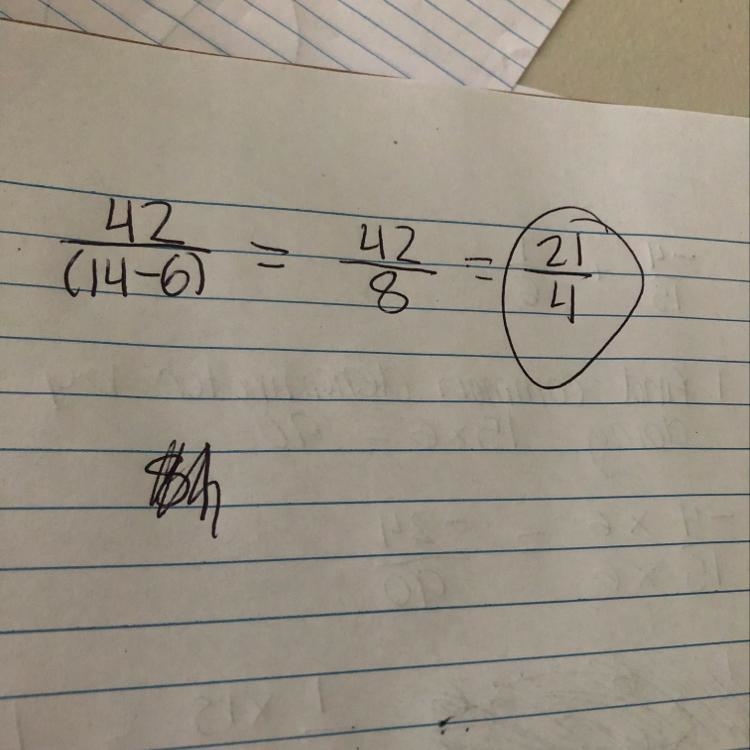 42/(14-6) = 42/8 = 21/4